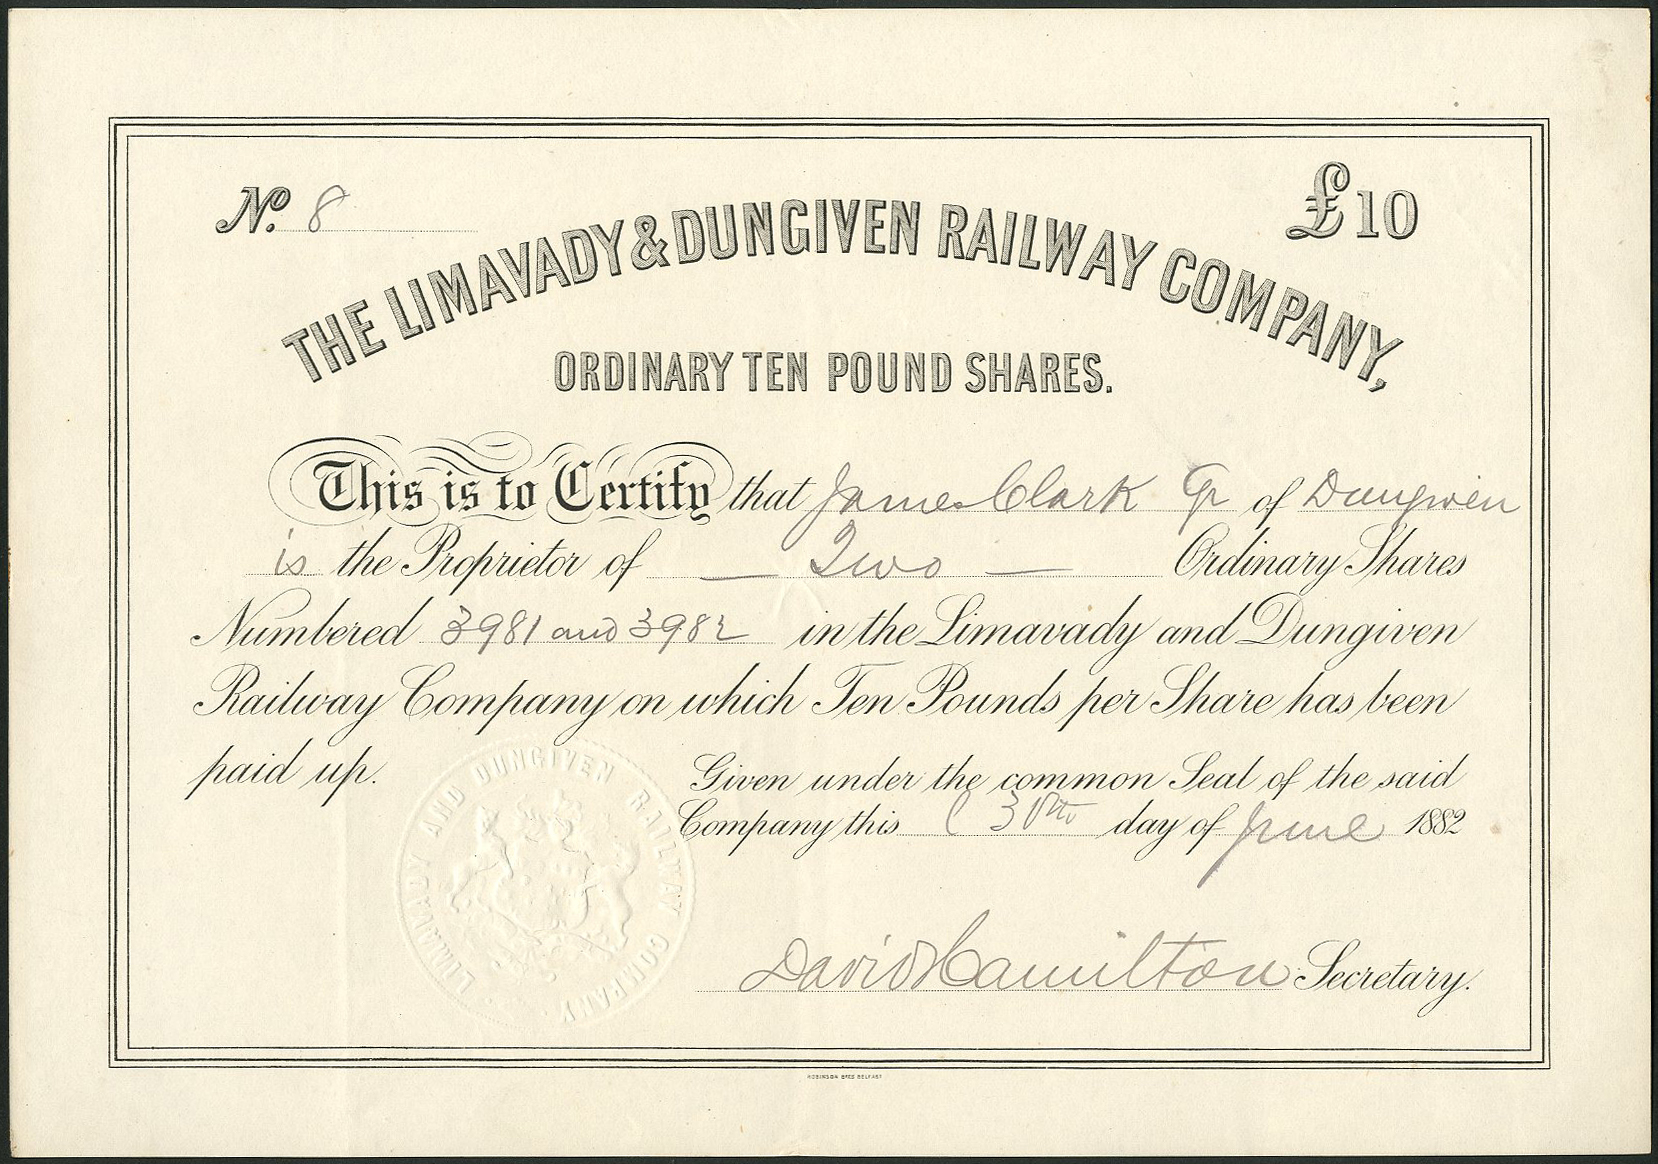 No. 8
£10
THE LIMAVADY & DUNGIVEN RAILWAY COMPANY,
ORDINARY TEN POUND SHARES.
This is to Certify that James Clark Jr of Dungiven
is the Proprietor of — Two — Ordinary Shares
Numbered 3981 and 3982 in the Limavady and Dungiven
Railway Company on which Ten Pounds per Share has been
paid up.
Given under the common Seal of the said
Company this 30th day of June 1882
LIMAVADY AND DUNGIVEN RAILWAY COMPANY
David Hamilton Secretary.
ROBINSON BROS BELFAST